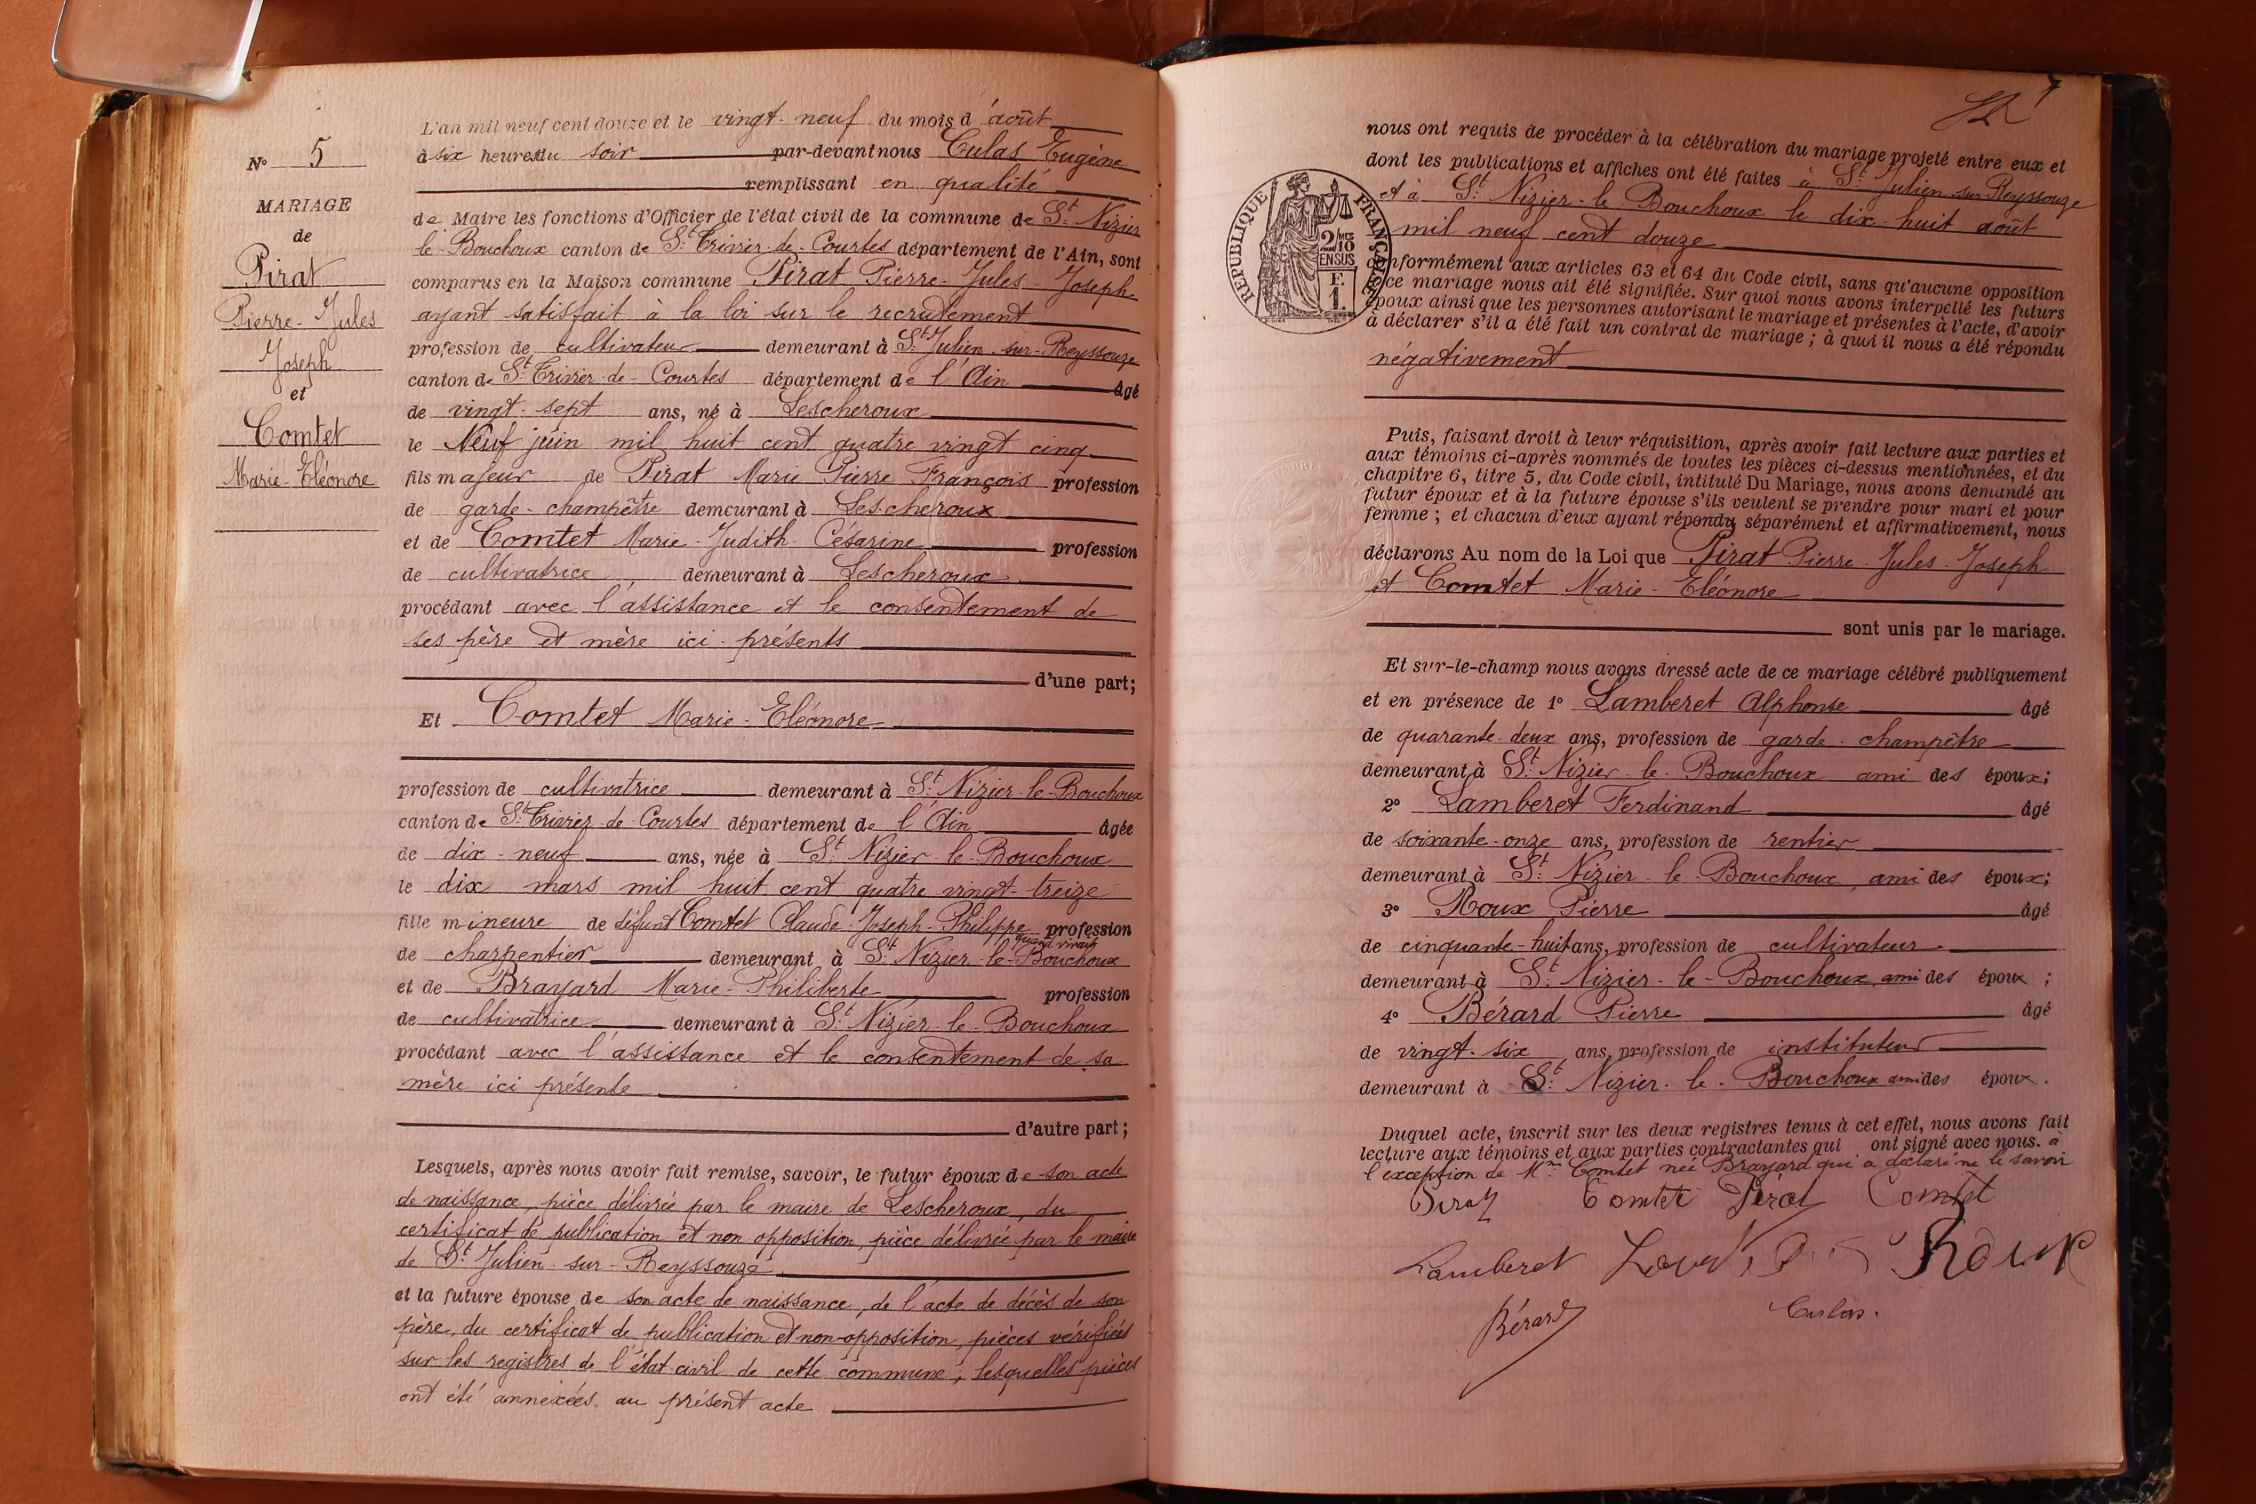 N° 5
MARIAGE
de
Pirat
Pierre-Jules
Joseph
et
Comtet
Marie-Eléonore
L'an mil neuf cent douze et le vingt-neuf du mois d'août
à six heures du soir par-devant nous Culas Eugène
remplissant en qualité
de Maire les fonctions d'Officier de l'état civil de la commune de St Nizier
le-Bouchoux canton de St Trivier-de-Courtes département de l'Ain, sont
comparus en la Maison commune Pirat Pierre-Jules-Joseph
ayant satisfait à la loi sur le recrutement
profession de cultivateur demeurant à St Julien-sur-Reyssouze
canton de St Trivier-de-Courtes département de l'Ain âgé
de vingt-sept ans, né à Lescheroux
le Neuf juin mil huit cent quatre vingt cinq
fils majeur de Pirat Marie Pierre François profession
de garde-champêtre demeurant à Lescheroux
et de Comtet Marie-Judith-Césarine profession
de cultivatrice demeurant à Lescheroux
procédant avec l'assistance et le consentement de
ses père et mère ici présents
d'une part;
Et Comtet Marie-Eléonore
profession de cultivatrice demeurant à St Nizier-le-Bouchoux
canton de St Trivier-de-Courtes département de l'Ain âgée
de dix-neuf ans, née à St Nizier-le-Bouchoux
le dix mars mil huit cent quatre vingt-treize
fille mineure de défunt Comtet Claude-Joseph-Philippe profession
quand vivait
de charpentier demeurant à St Nizier-le-Bouchoux
et de Brayard Marie-Philiberte profession
de cultivatrice demeurant à St Nizier-le-Bouchoux
procédant avec l'assistance et le consentement de sa
mère ici présente
d'autre part;
Lesquels, après nous avoir fait remise, savoir, le futur époux de son acte
de naissance, pièce délivrée par le maire de Lescheroux, du
certificat de publication et non opposition, pièce délivrée par le maire
de St Julien-sur-Reyssouze
et la future épouse de son acte de naissance, de l'acte de décès de son
père, du certificat de publication et non-opposition, pièces vérifiées
sur les registres de l'état-civil de cette commune; lesquelles pièces
ont été annexées au présent acte
nous ont requis de procéder à la célébration du mariage projeté entre eux et
dont les publications et affiches ont été faites à St Julien-sur-Reyssouze
et à St Nizier-le-Bouchoux le dix-huit août
mil neuf cent douze
RÉPUBLIQUE FRANÇAISE
2/10
EN SUS
F.
1.
conformément aux articles 63 et 64 du Code civil, sans qu'aucune opposition
à ce mariage nous ait été signifiée. Sur quoi nous avons interpellé les futurs
époux ainsi que les personnes autorisant le mariage et présentes à l'acte, d'avoir
à déclarer s'il a été fait un contrat de mariage; à quoi il nous a été répondu
négativement
Puis, faisant droit à leur réquisition, après avoir fait lecture aux parties et
aux témoins ci-après nommés de toutes les pièces ci-dessus mentionnées, et du
chapitre 6, titre 5, du Code civil, intitulé Du Mariage, nous avons demandé au
futur époux et à la future épouse s'ils veulent se prendre pour mari et pour
femme; et chacun d'eux ayant répondu séparément et affirmativement, nous
déclarons Au nom de la Loi que Pirat Pierre-Jules-Joseph
et Comtet Marie-Eléonore
sont unis par le mariage.
Et sur-le-champ nous avons dressé acte de ce mariage célébré publiquement
et en présence de 1° Lamberet Alphonse âgé
de quarante-deux ans, profession de garde-champêtre
demeurant à St Nizier-le-Bouchoux ami des époux;
2° Lamberet Ferdinand âgé
de soixante-onze ans, profession de rentier
demeurant à St Nizier-le-Bouchoux, ami des époux;
3° Roux Pierre âgé
de cinquante-huit ans, profession de cultivateur
demeurant à St Nizier-le-Bouchoux ami des époux;
4° Bérard Pierre âgé
de vingt-six ans, profession de instituteur
demeurant à St Nizier-le-Bouchoux ami des époux.
Duquel acte, inscrit sur les deux registres tenus à cet effet, nous avons fait
lecture aux témoins et aux parties contractantes qui ont signé avec nous. à
l'exception de Mme Comtet née Brayard qui a déclaré ne le savoir
Pirat Comtet Pirat Comtet
Lamberet Roux
Bérard Culas.